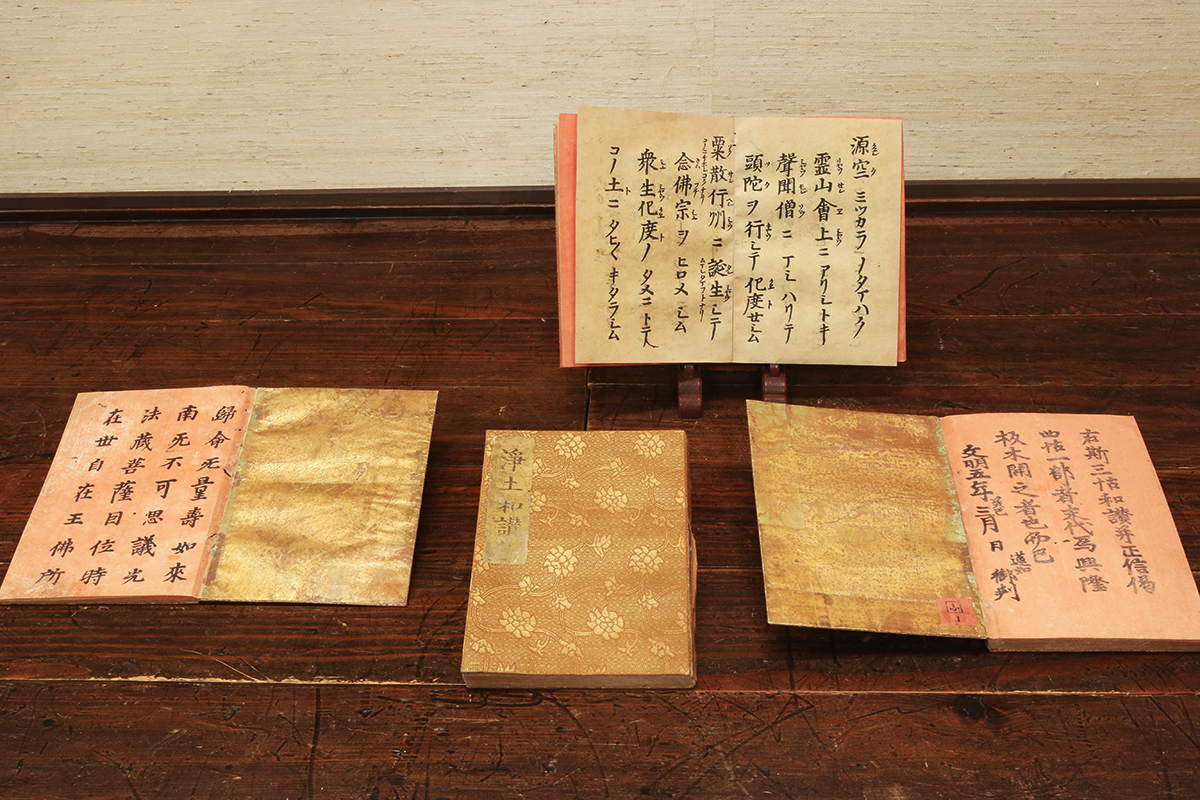 源空ミツカラノタマハク
靈山會上ニアリシトキ
聲聞僧ニマシハリテ
頭陀ヲ行シテ化度セシム
粟散片州ニ誕生シテ
念佛宗ヲヒロメシム
衆生化度ノタメニトテ
コノ土ニタヒ〱キタラシム
歸命无量壽如來
南无不可思議光
法藏菩薩因位時
在世自在王佛所
淨土和讃
右斯三帖和讃并正信偈
四帖一部者末代為興隆
板木開之者也而已
文明五年癸巳三月 日
蓮如 御判